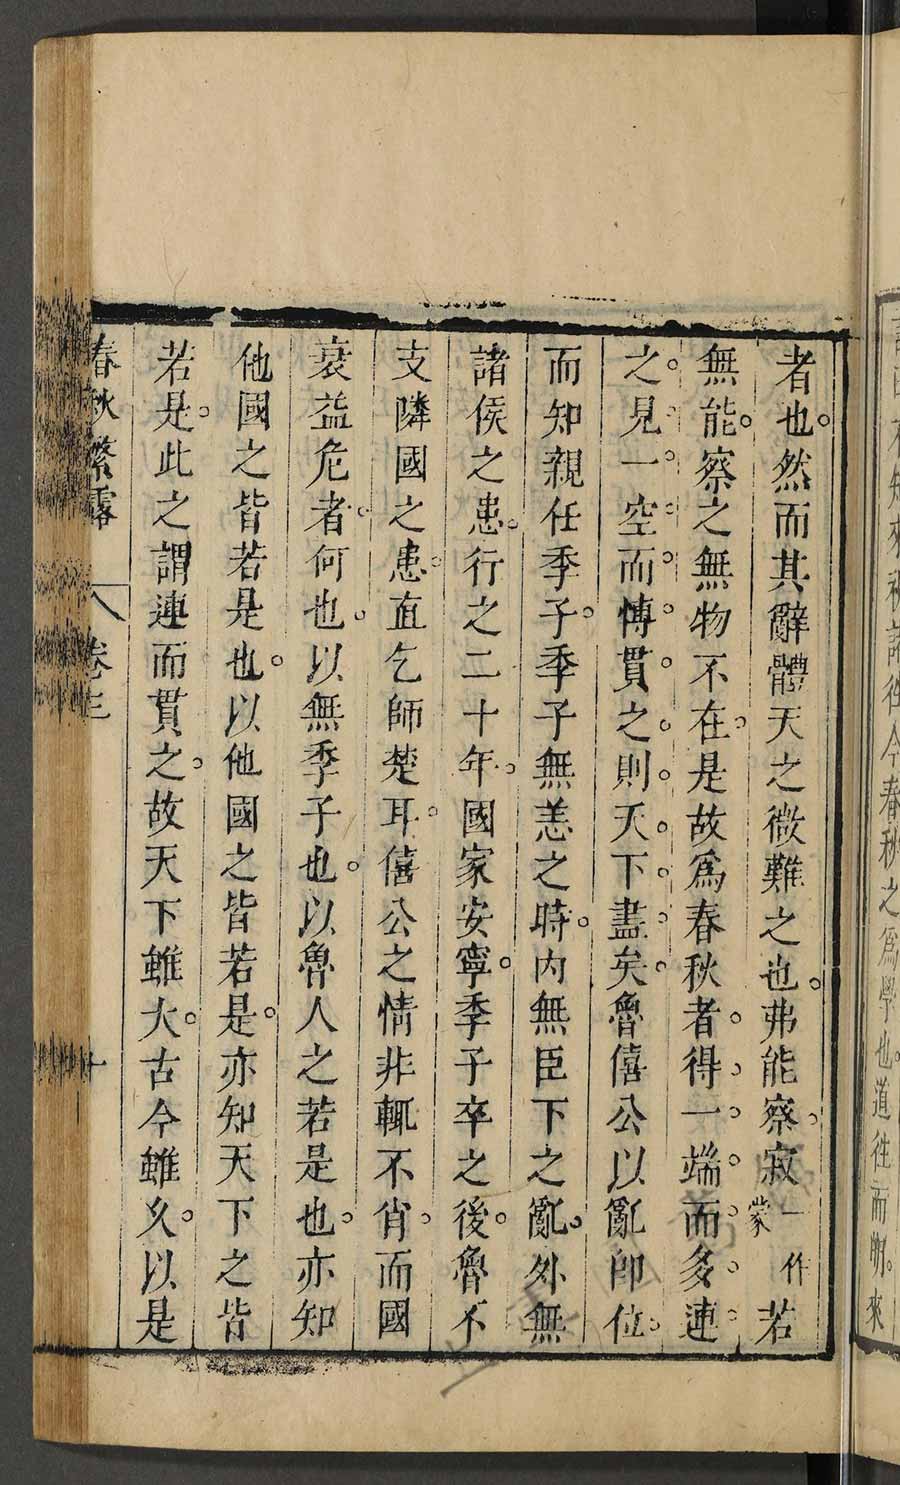 者也然而其辭體天之微難之也弗能察寂一作蒙若
無能察之無物不在是故爲春秋者得一端而多連
之見一空而慱貫之則天下盡矣魯僖公以亂卽位
而知親任季子季子無恙之時内無臣下之亂外無
諸侯之患行之二十年國家安寧季子卒之後魯不
支隣國之患直乞師楚耳僖公之情非輒不肖而國
衰益危者何也以無季子也以魯人之若是也亦知
他國之皆若是也以他國之皆若是亦知天下之皆
若是此之謂連而貫之故天下雖大古今雖久以是
春秋繁露 卷三 十
知來
春秋之爲學也道往而明來